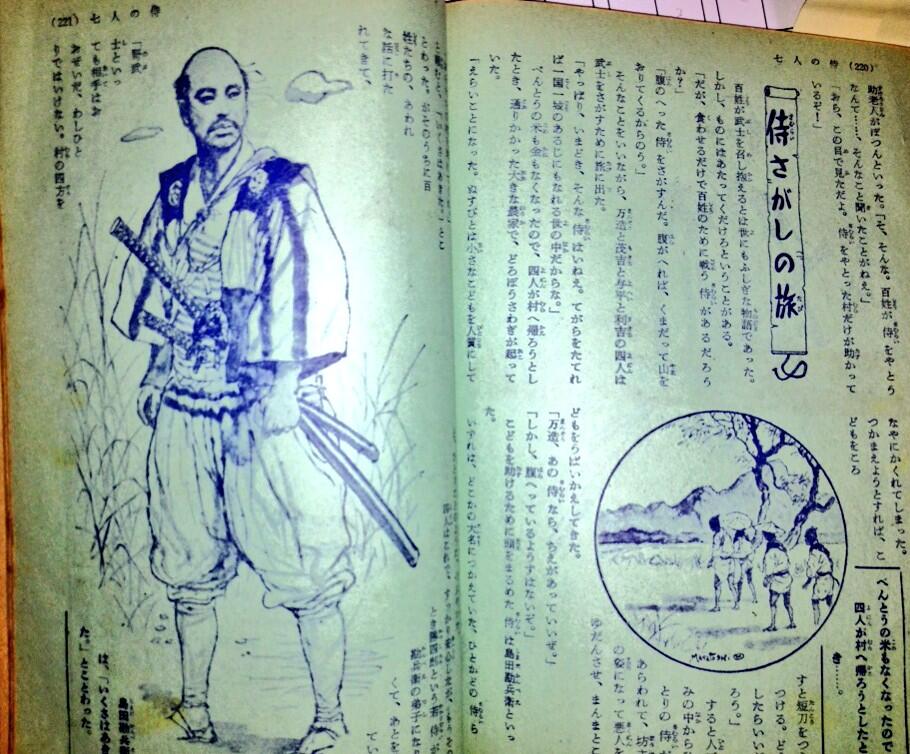 七人の侍 (220)
助老人がぽつんといった。「そ、そんな。百姓が侍をやとう
なんて……、そんなこと聞いたことがねえ。」
「おら、この目で見ただよ。侍をやとった村だけが助かって
いるぞ！」
侍さがしの旅
百姓が武士を召し抱えるとは世にもふしぎな物語であった。
しかし、ものにはあたってくだけろということがある。
「だが、食わせるだけで百姓のために戦う侍があるだろう
か？」
「腹のへった侍をさがすんだ。腹がへれば、くまだって山を
おりてくるからのう。」
そんなことをいいながら、万造と茂吉と与平と利吉の四人は
武士をさがすために旅に出た。
「やっぱり、いまどき、そんな侍はいねえ。てがらをたてれ
ば一国一城のあるじにもなれる世の中だからな。」
べんとうの米も金もなくなったので、四人が村へ帰ろうとし
たとき、通りかかった大きな農家で、どろぼうさわぎが起って
いた。
「えらいことになった。ぬすびとは小さなこどもを人質にして
なやにかくれてしまった。
つかまえようとすれば、こ
どもをころ
べんとうの米もなくなったので
四人が村へ帰ろうとしたと
き……。
すと短刀をつ
つける。ど
したらいい
ろう。」
すると人
みの中から
とりの侍
あらわれて、坊
の姿になって悪人を
ゆだんさせ、まんまとこ
どもをうばいかえしてきた。
「万造、あの侍なら、ちえがあっていいぜ。」
「しかし、腹へっているようすはないぞ。」
こどもを助けるために頭をまるめた侍は島田勘兵衛といっ
た。
いずれは、どこかの大名につかえていた、ひとかどの侍ら
七人の侍 (221)
とわった。がそのうちに百
姓たちの、あわれ
な話に打た
れてきて、
「野武
士といっ
ても相手はお
おぜいだ、わしひと
りではいけない。村の四方を
という若侍が
勘兵衛の弟子にな
くて、あとを
てい
島田勘兵
は、「いくさはあき
た。」とことわった。